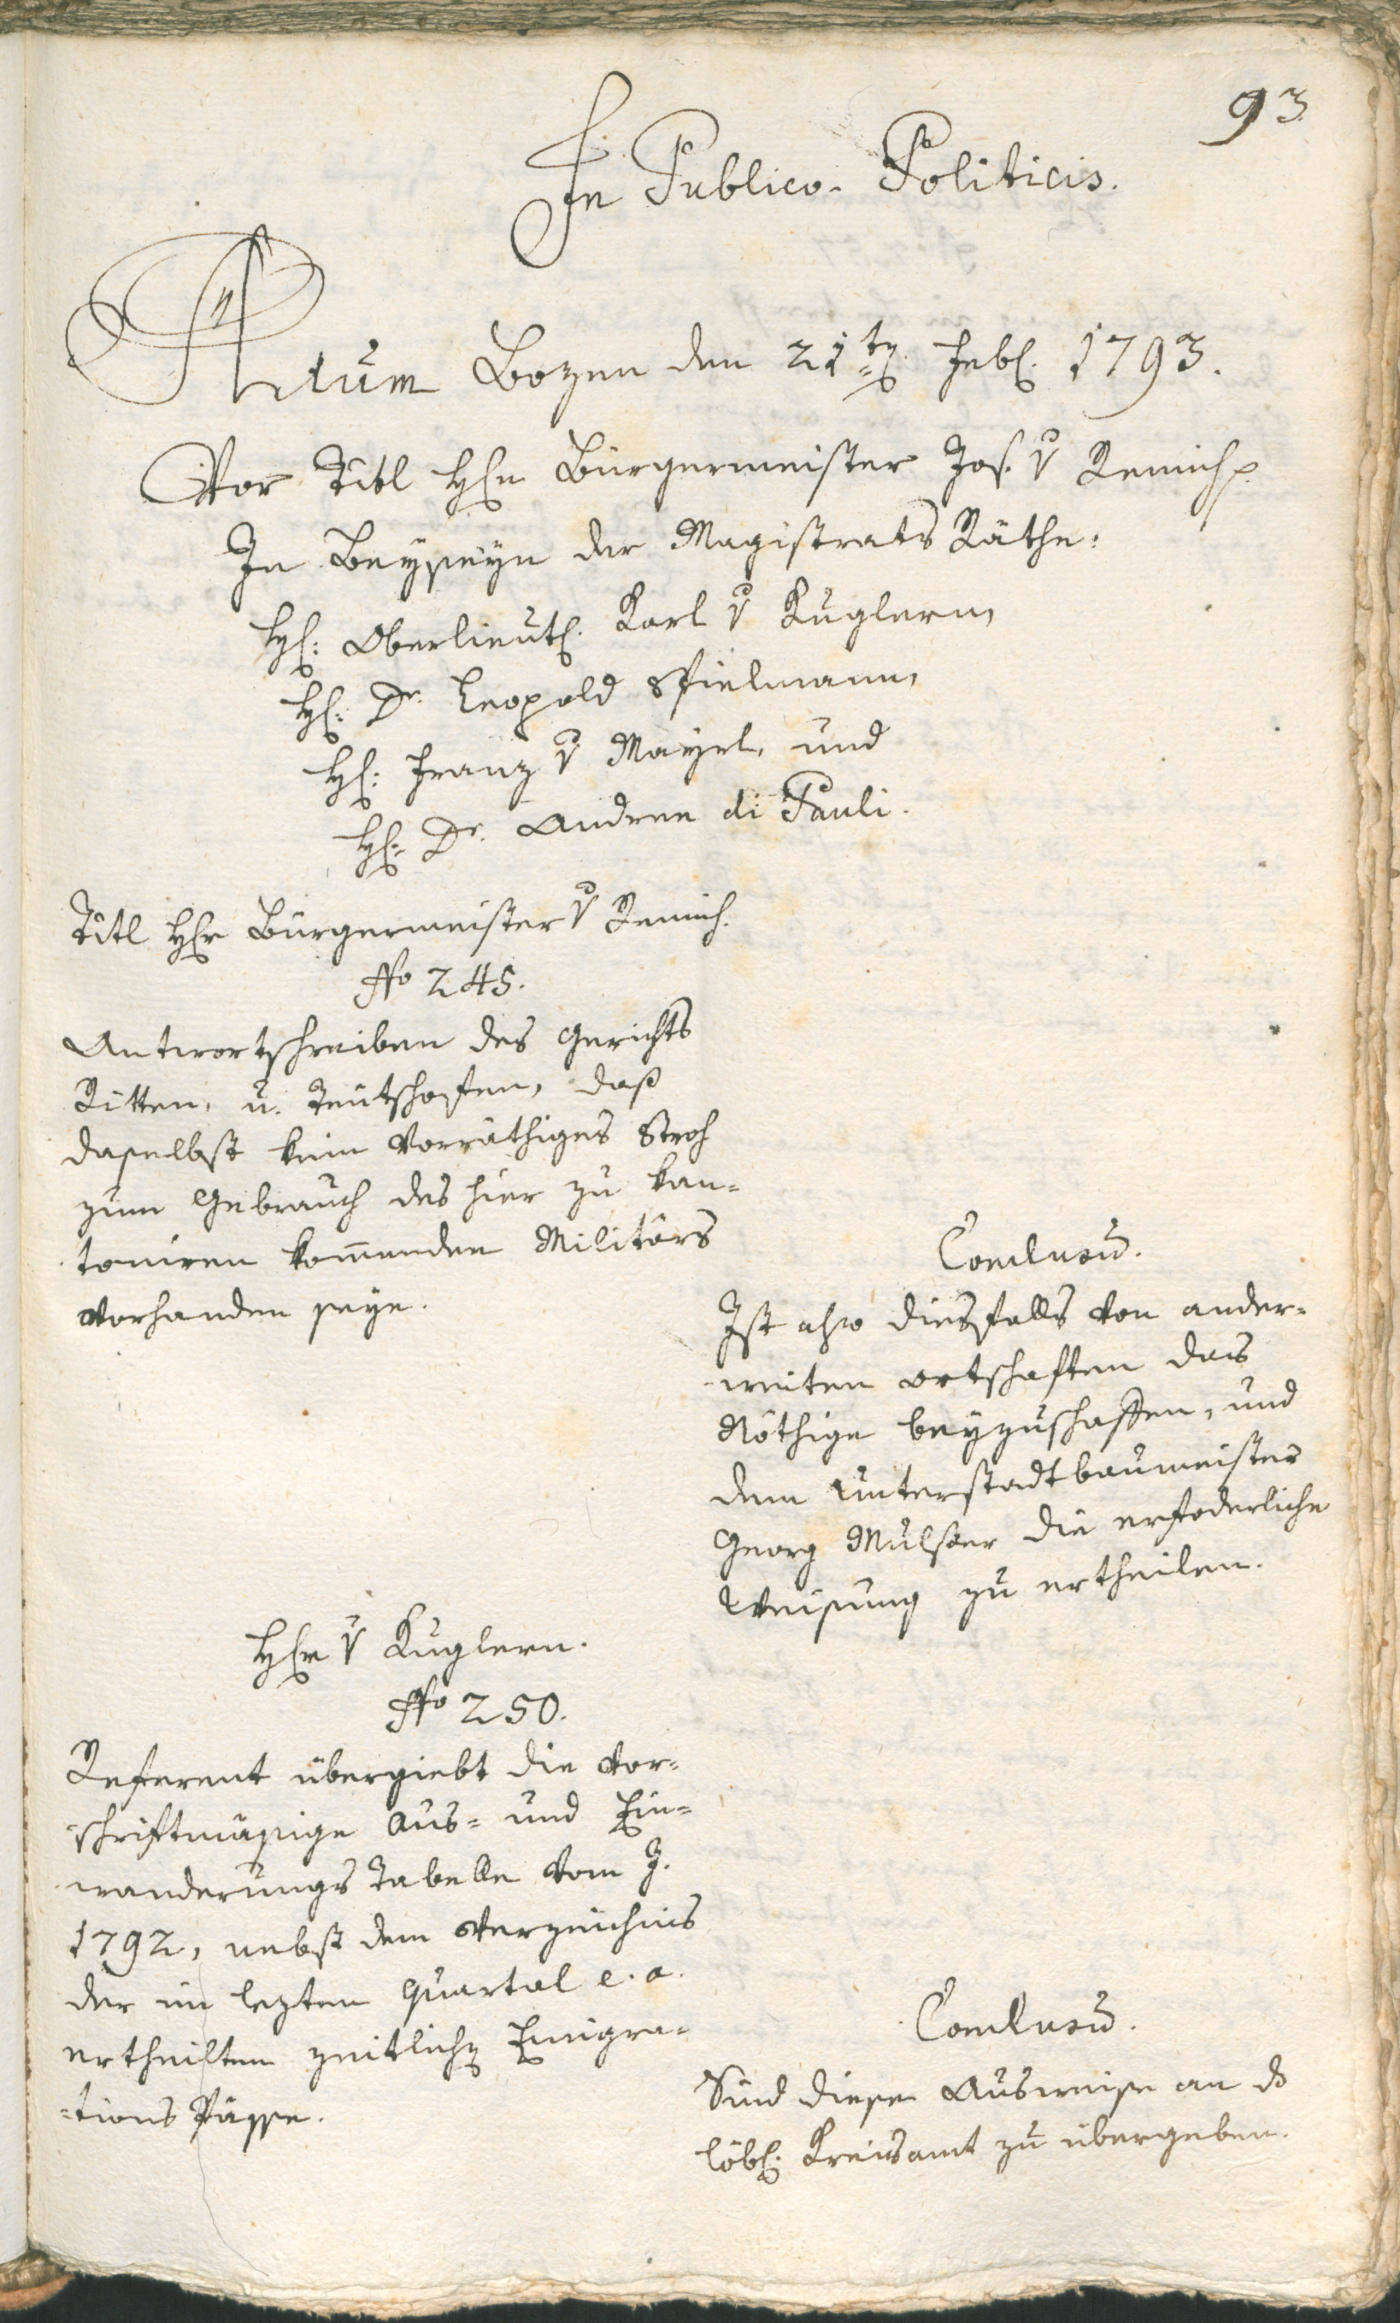 93
In Publico-Politicis.
Actum Bozen den 21ten Feb. 1793.
Vor Titl Hℓn Burgermeister Jos. v Remich p.
In Beyseyn der Magistrats Räthe:
H: Oberlieut. Karl v Kuglern,
H: Dr. Leopold Spielmann,
H: Franz v Mayrl, und
H: Dr. Andree di Pauli.
Titl Hℓr Burgermeister v Remich.
No 245.
Antwortschreiben des Gerichts
Ritten, u. Teutschofen, daß
daselbst kein vorräthiges Stroh
zum Gebrauch des hier zu kan=
toniren kommenden Militärs
vorhanden seye.
Conclusum.
Ist also diesfalls von ander=
weiten Ortschaften das
Nöthige beyzuschaffen, und
dem Unterstadtbaumeister
Georg Mulser die erfoderliche
Weisung zu ertheilen.
Hℓr v Kuglern.
No 250.
Referent übergiebt die vor=
schriftmäsige Aus= und Ein=
wanderungs Tabelle vom J.
1792, nebst dem Verzeichnis
der im lezten Quartal e. a.
ertheilten zeitlichen Emigra=
=tions Pässe.
Conclusum.
Sind diese Ausweise an das
löbl. Kreisamt zu übergeben.